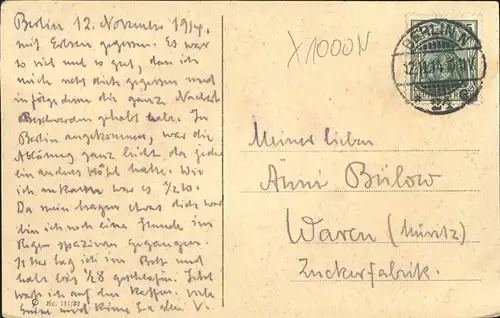 Berlin 12. November 1914.
mit Erbsen gegessen. Es war
so viel und so gut, dass ich
mich recht dick gegessen und
infolgedessen die ganze Nacht
Beschwerden gehabt habe. In
Berlin angekommen, war die
Ablösung ganz leicht, da jeder
ein anderes Hotel hatte. Wie
ich ankam war es ½10.
Da mein Magen etwas dick war
bin ich noch eine Stunde im
Regen spazieren gegangen.
lag ich im Bett und
habe bis ½8 geschlafen. Jetzt
warte ich auf den Kaffee. Viele
Grüsse und Küsse
No. 111/32
X1000N
BERLIN N
12.11.14
Meiner lieben
Änni Bülow
Waren (Müritz)
Zuckerfabrik.